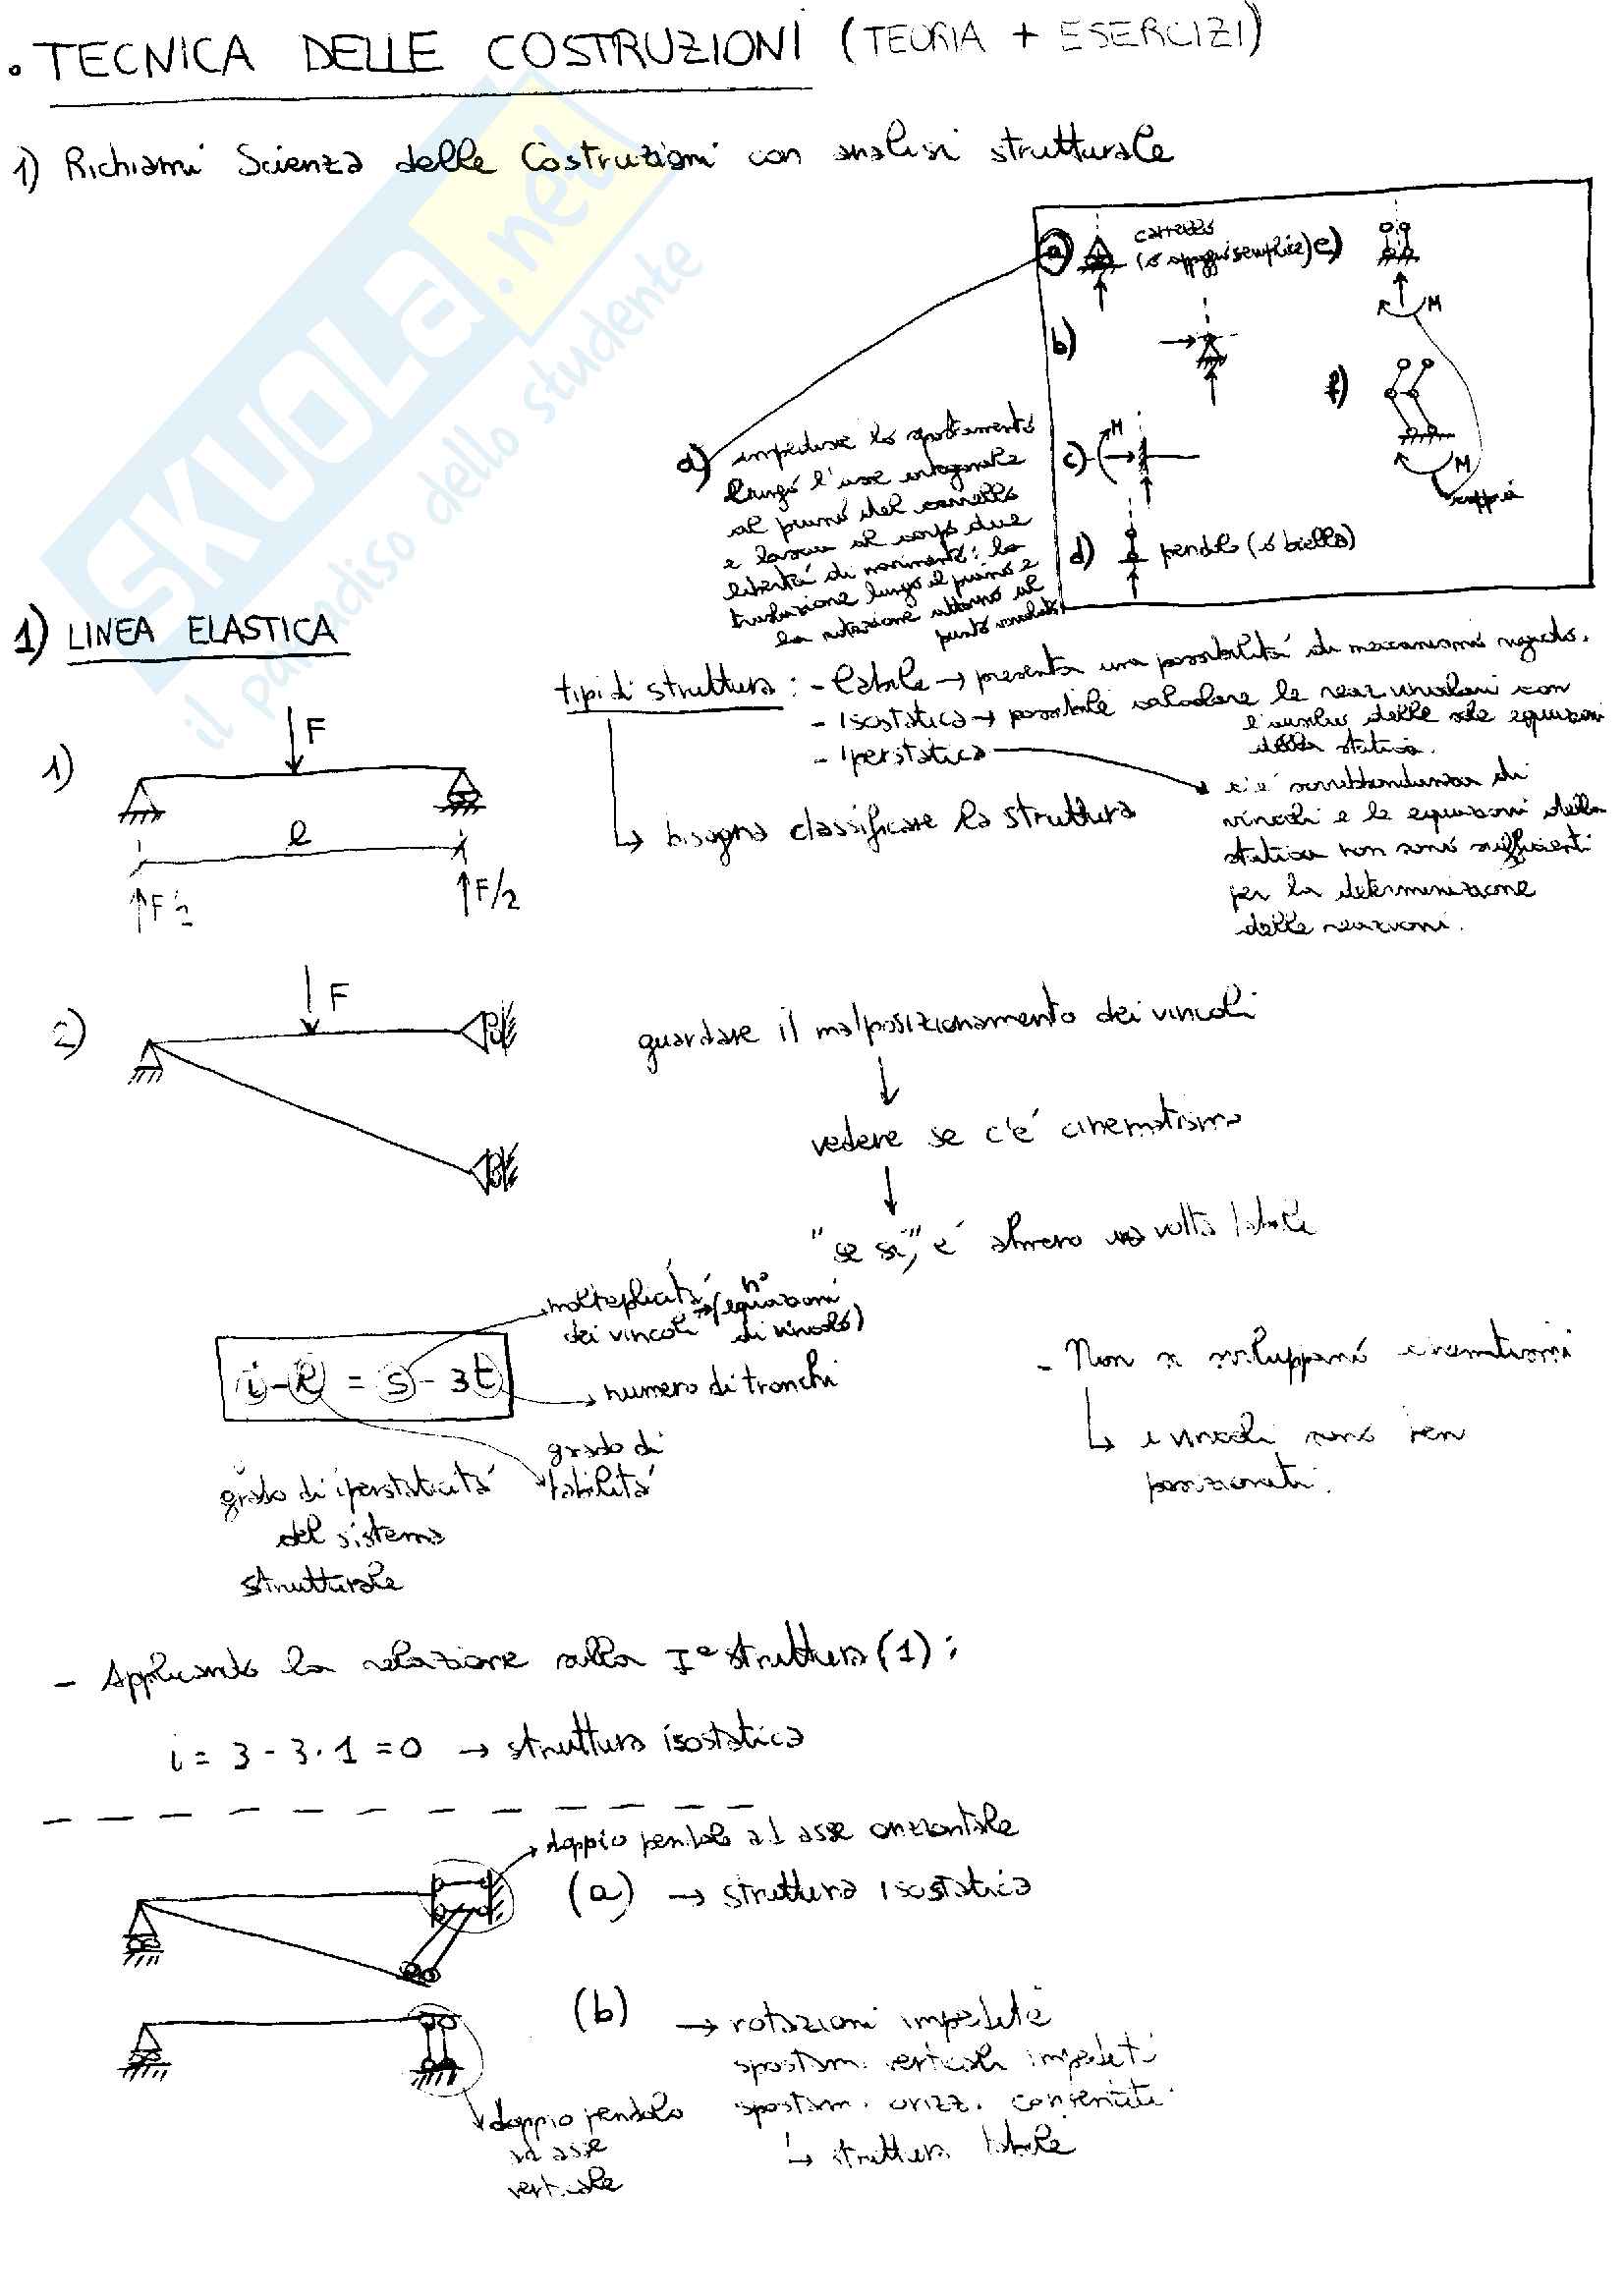 • TECNICA DELLE COSTRUZIONI (TEORIA + ESERCIZI)
1) Richiami Scienza delle Costruzioni con analisi strutturale
SKUOLA.net
il paradiso dello studente
a) carrello
(o appoggio semplice)
e)
M
b)
f)
M
coppia
c) M
d) pendolo (o biella)
a) impedisce lo spostamento
lungo l'asse ortogonale
al piano del carrello
e lascia al corpo due
libertà di movimento: la
traslazione lungo il piano e
la rotazione attorno al
punto vincolato
1) LINEA ELASTICA
tipi di struttura: - labile → presenta una possibilità di meccanismo rigido.
- isostatica → possibile calcolare le reaz. vincolari con
l'ausilio delle sole equazioni
della statica.
- Iperstatica
c'è sovrabbondanza di
vincoli e le equazioni della
statica non sono sufficienti
per la determinazione
delle reazioni.
↳ bisogna classificare la struttura
1) F
l
F/2
F/2
2) F
guardare il malposizionamento dei vincoli
↓
vedere se c'è cinematismo
↓
"se si", è almeno una volta labile
i - l = s - 3t
molteplicità
dei vincoli → (n° equazioni
di vincolo)
→ numero di tronchi
grado di
labilità
grado di iperstaticità
del sistema
strutturale
- Non si sviluppano cinematismi
↳ i vincoli sono ben
posizionati.
- Applicando la relazione alla Iª struttura (1):
i = 3 - 3·1 = 0 → struttura isostatica
doppio pendolo ad asse orizzontale
(a) → struttura isostatica
(b) → rotazioni impedite
spostam. verticali impediti
spostam. orizz. consentiti.
↳ struttura labile
doppio pendolo
ad asse
verticale